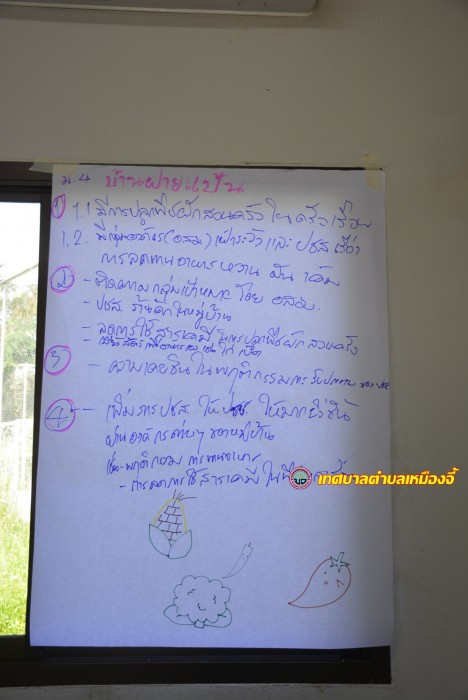 ม.4 บ้านฝายแป้น
① 1.1 มีการปลูกพืชผักสวนครัวในครัวเรือน
1.2. มี (อสม) เฝ้าระวัง และ ปชส เรื่อง
การลดทานอาหารหวาน มัน เค็ม
② - ติดตามกลุ่มเป้าหมาย โดย อสม.
- ปชส. ร้านค้าในหมู่บ้าน
- ลดการใช้สารเคมีในการปลูกพืชผักสวนครัว
เลี้ยงสัตว์เพื่ออาหาร เช่น ไก่ เป็ด
③ - ความเคยชินในพฤติกรรมการรับประทาน ของ ปชช
④ - เพิ่มการ ปชส. ให้ ปชช. ให้มากยิ่งขึ้น
ผ่านองค์กรต่างๆ ของหมู่บ้าน
เช่น พฤติกรรม การทานอาหาร
- การลดการใช้สารเคมีใน
เทศบาลตำบลเหมืองจี้